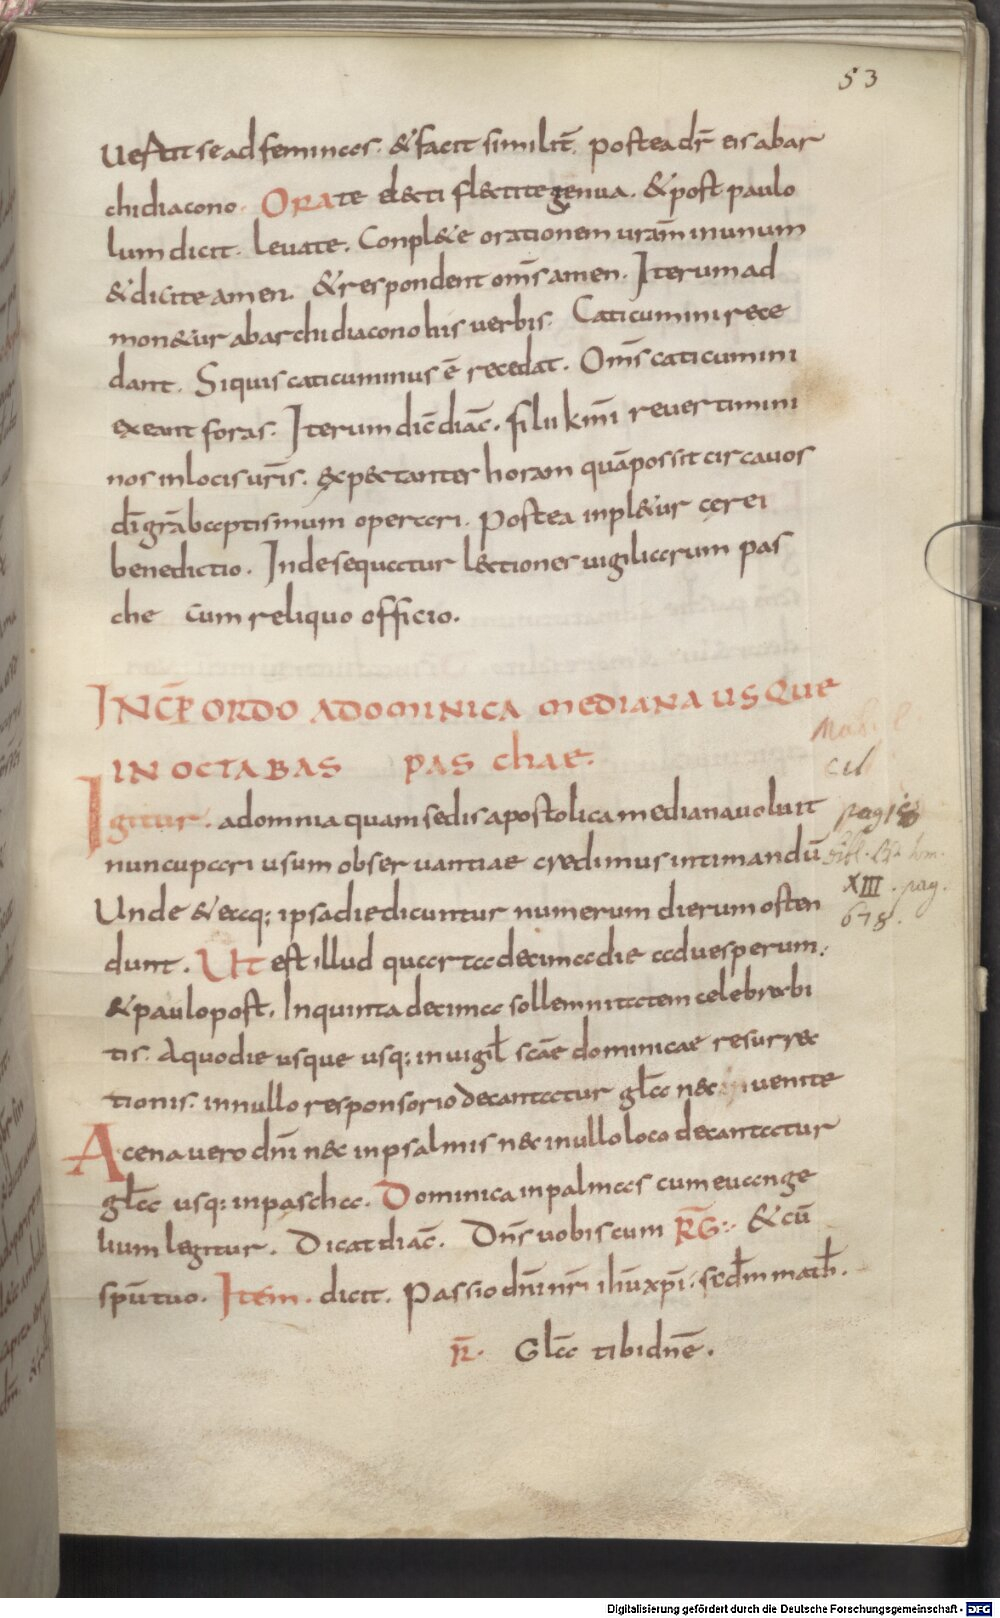 53
uertit se ad feminas. & facit similit̄. postea dr̄ eis ab ar
chidiacono. Orate electi flectite genua. & post paulo
lum dicit. leuate. Conpl&e orationem ur̄am in unum
& dicite amen. & respondent om̄s amen. Iterum ad
mon&ur ab archidiacono his uerbis. Caticumini rece
dant. Siquis caticuminus ē recedat. Om̄s caticumini
exeant foras. Iterum dic̄ diac̄. filii k̄mi reuertimini
nos in locis ur̄is. expectantes horam quā possit circa uos
dī gr̄a baptismum operari. Postea inpl&ur cęrei
benedictio. Inde sequatur lectiones uigiliarum pas
che cum reliquo officio.
INCP̄ ORDO A DOMINICA MEDIANA USQUE
IN OCTABAS PASCHAE.
Igitur. a domnia quam sedis apostolica mediana uoluit
nuncupari usum obseruantiae credimus intimandū
Unde & eaq; ipsa die dicuntur numerum dierum osten
dunt. Ut est illud quarta decima die ad uesperum.
& paulo post. In quinta decima sollemnitatem celebrabi
tis. A quo die usque usq; in uigil̄ scāe dominicae resurrec
tionis. in nullo responsorio decantatur gl̄a nec uenite
A cena uero dn̄i nec in psalmis nec in ullo loco decantatur
gl̄a usq; in pascha. Dominica in palmas cum euange
lium legitur. Dicat diac̄. Dn̄s uobiscum R̄G. & cū
sp̄u tuo. Item. dicit. Passio dn̄i nr̄i ihū xp̄i. secd̄m math̄.
R̄. Gl̄a tibi dn̄e.
pag
XIII. pag.
678.
Digitalisierung gefördert durch die Deutsche Forschungsgemeinschaft - DFG